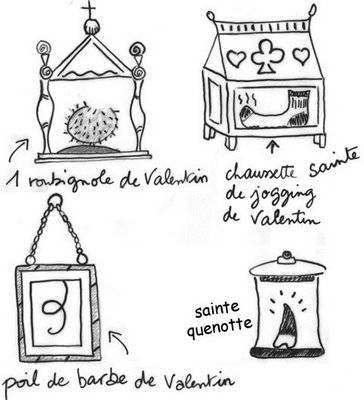 1 roubignole de Valentin
chaussette sainte
de jogging
de Valentin
poil de barbe de Valentin
sainte
quenotte